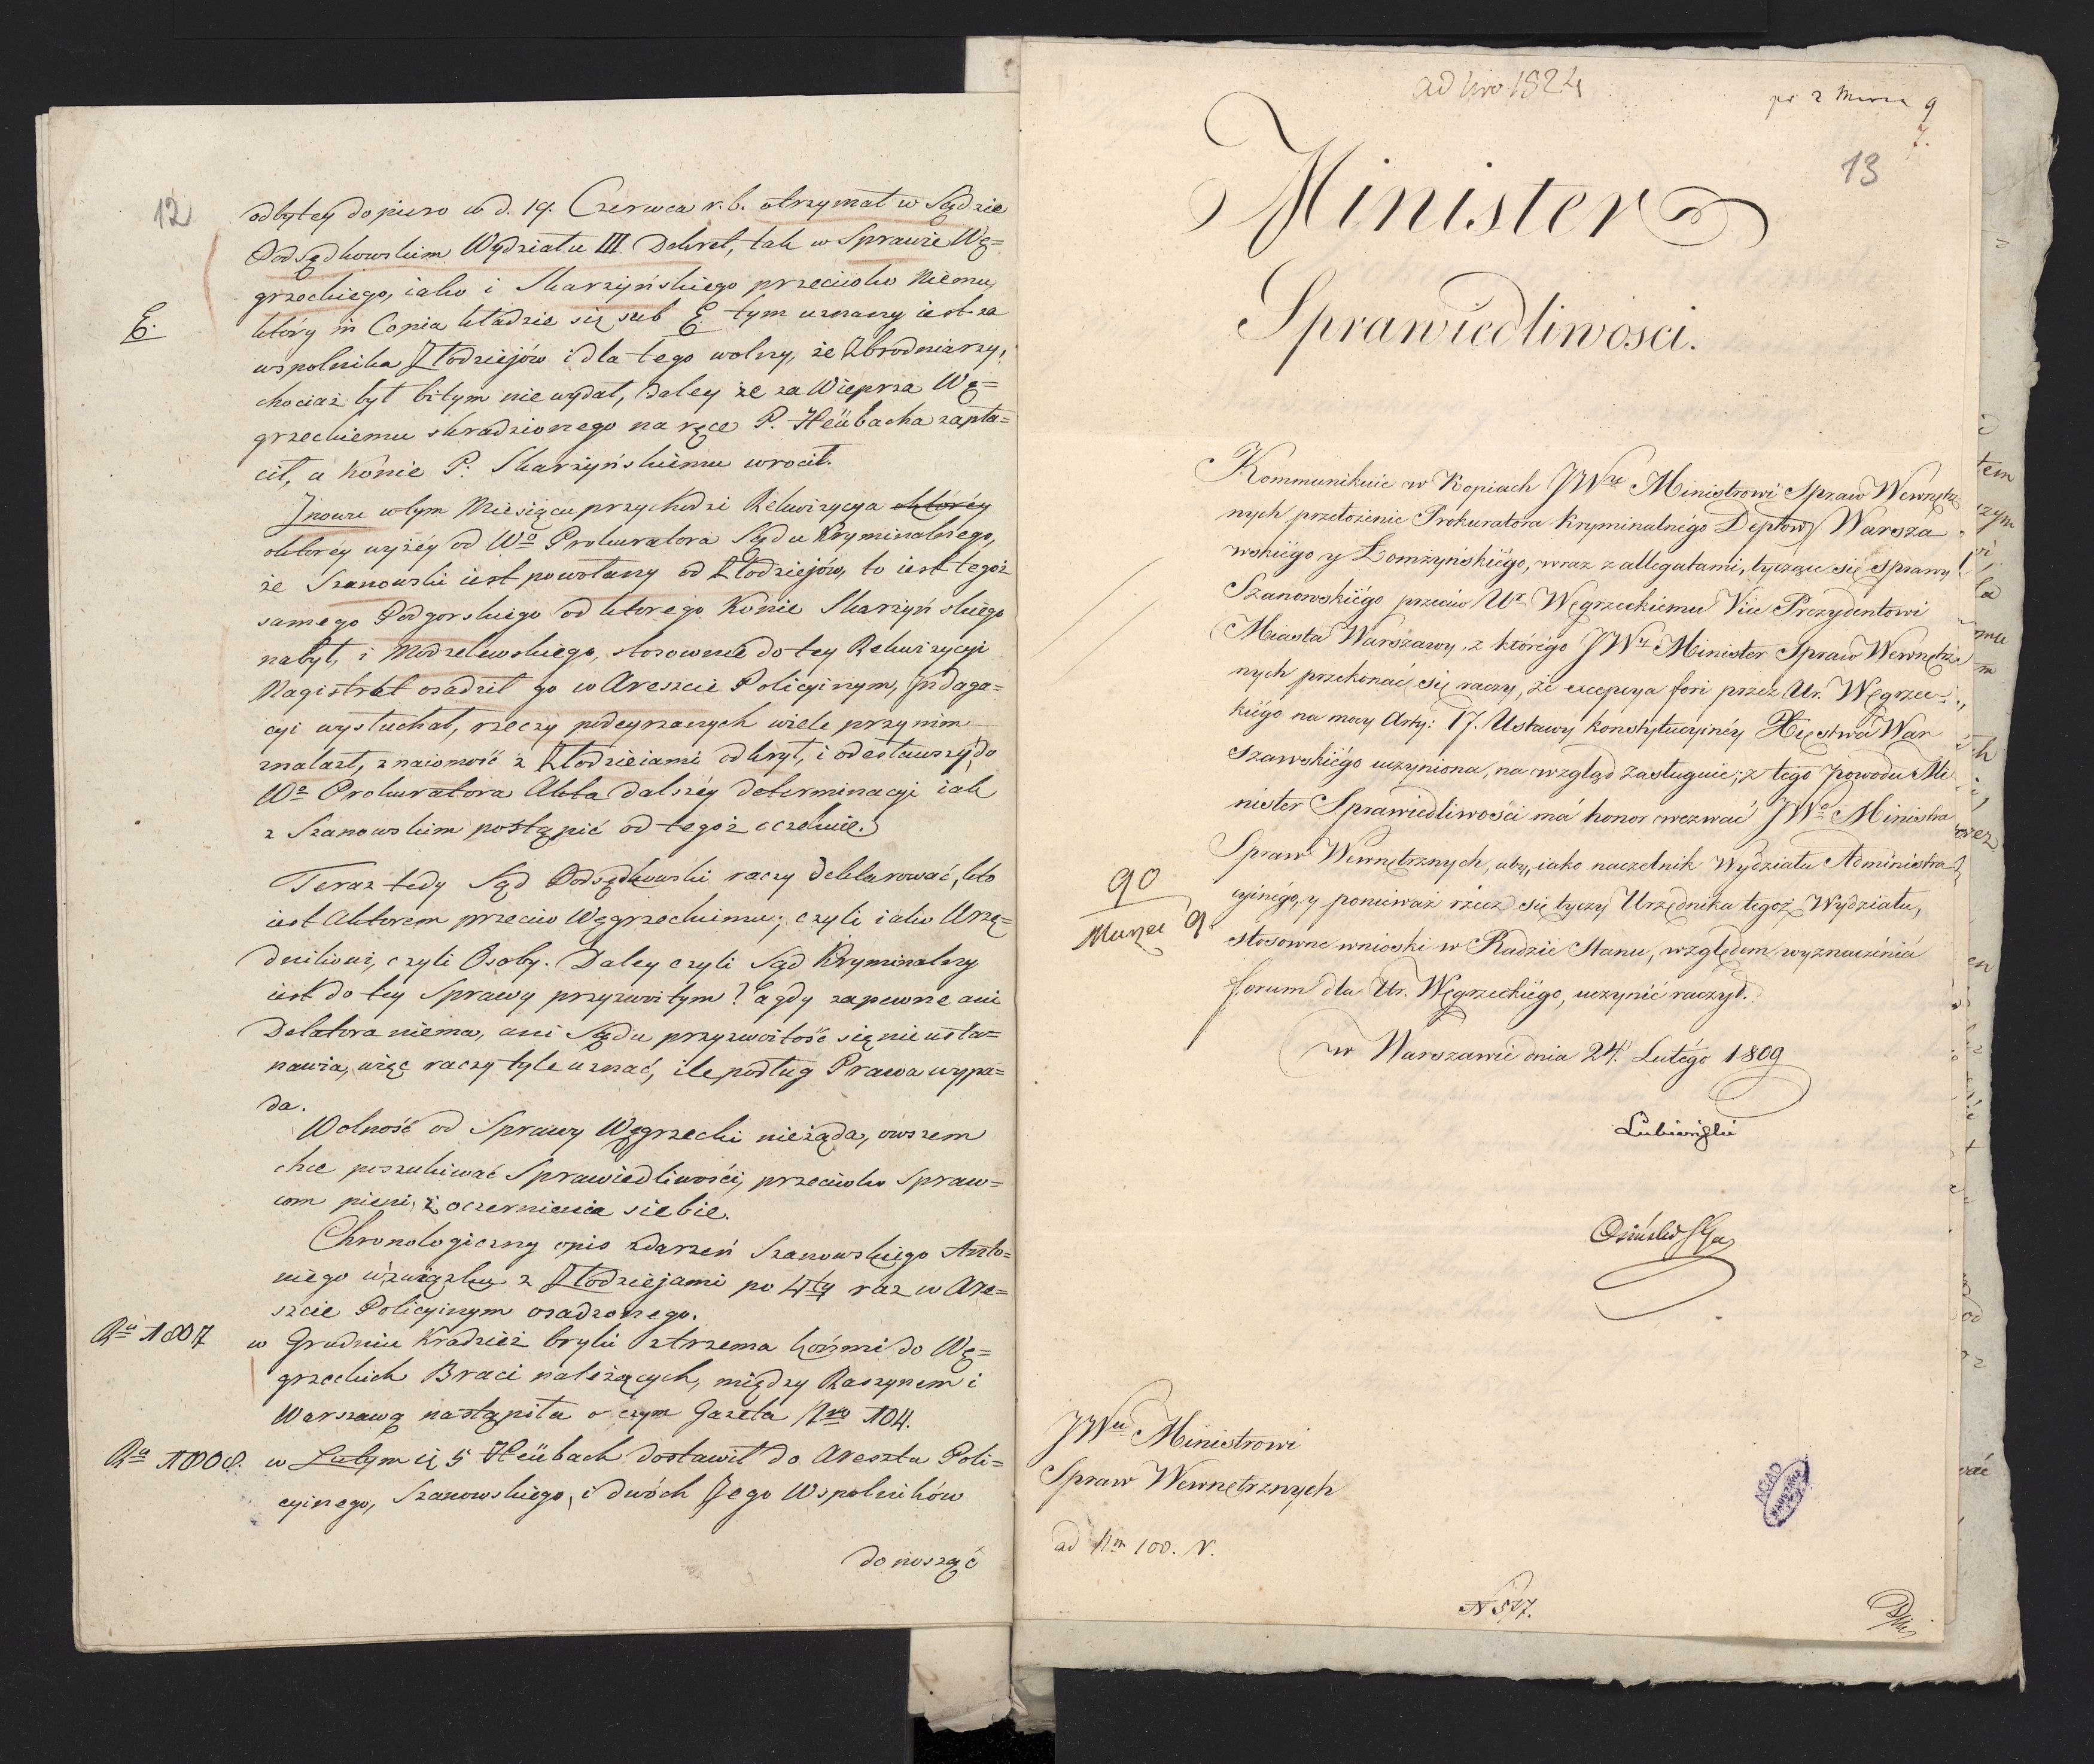 12
odbytey dopiero w d. 19. Czerwca r. b. otrzymał w Sądzie
Podsędkowskim Wydziału III Dekret, tak w Sprawie Wę=
grzeckiego, iako i Skarzyńskiego przeciwko Niemu,
E.
który in Copia kładzie się sub E tym uznany iest za
wspolnika Złodziejów i dla tego wolny, że Zbrodniarzy,
chociaż był bitym nie wydał, daley że za Wieprza Wę=
grzeckiemu skradzionego na ręce P. Heübacha zapła=
cił, a Konie P: Skarżyńskiemu wrocił.
Znowu w tym Miesiącu przychodzi Rekwizycya
o ktorey wyżey od Wo Prokuratora Sądu Kryminalnego,
że Szanowski iest powołany od Złodziejów, to iest tegoż
samego Podgorskiego od ktorego Konie Skarżyńskiego
nabył, i Modzelewskiego, stosownie do tey Rekwizycyi
Magistrat osadził go w Areszcie Policyinym, Indaga=
cyi wysłuchał, rzeczy podeyrzanych wiele przy nim
znalazł, znaiomość z Złodzieiami odkrył, i odesławszy do
Wo Prokuratora Akta dalszéy determinacyi iak
z Szanowskim postąpić od tegoż oczekuie.
Teraz tedy Sąd Podsędkowski raczy deklarować, kto
iest Aktorem przeciw Węgrzeckiemu; czyli iako Urzę=
dnikowi, czyli Osoby. Daley czyli Sąd Kryminalny
iest do tey Sprawy przyzwoitym? a gdy zapewne ani
Delatora niema, ani Sądu przyzwoitość się nie usta=
nawia, więc raczy tyle uznać, ile podług Prawa wypa=
da.
Wolność od Sprawy Węgrzecki nieżąda, owszem
chce poszukiwać Sprawiedliwości, przeciwko Spraw=
com pieni, i oczernienia siebie.
Chronologiczny opis zdarzeń Szanowskiego Anto=
niego w związku z Złodziejami po 4ty raz w Are=
szcie Policyinym osadzonego.
Ru 1807 w Grudniu Kradzież bryki z trzema końmi do Wę=
grzeckich Braci należących, między Raszynem i
Warszawą nastąpiła o czym Gazeta Nro 104.
Ru 1808. w Lutym 5 Heübach dostawił do Aresztu Poli=
cyinego, Szanowskiego, i dwóch Jego Wspolników
donosząc
ad Nro 1824
pr 2 Marca 9
7.
13
Minister
Sprawiedliwosci.
Kommunikuie w Kopiach JWu Ministrowi Spraw Wewnętrz
nych przełożenie Prokuratora Kryminalnégo Deptow Warsza
wskiégo y Łomżyńskiégo, wraz z allegatami, tyczące się sprawy
Szanowskiégo przeciw Ur Węgrzeckiemu Vice Prezydentowi
Miasta Warszawy, z którégo JWy Minister Spraw Wewnętrz
nych przekonać się raczy, że excepcya fori przez Ur. Węgrzec=
kiégo na mocy Arty: 17. Ustawy konstytucyinéy Xięstwa War
szawskiégo uczyniona, na wzgląd zasługuie; z tégo powodu Mi
nister Sprawiedliwości má honor wezwać JWo Ministra
Spraw Wewnętrznych, aby, iako naczelnik Wydziału Administra
cyinégo, y ponieważ rzecz się tyczy Urzędnika tegoż Wydziału,
stosowne wnioski w Radzie Stanu, względem wyznaczénia
forum dla Ur. Węgrzeckiégo, uczynić raczył.
90
Marzec 9.
w Warszawie dnia 24. Lutégo 1809
Lubieński
Osiński SGa
JWu Ministrowi
Spraw Wewnętrznych
ad Nm 100. V.
N 517.
AGAD
WARSZAWA